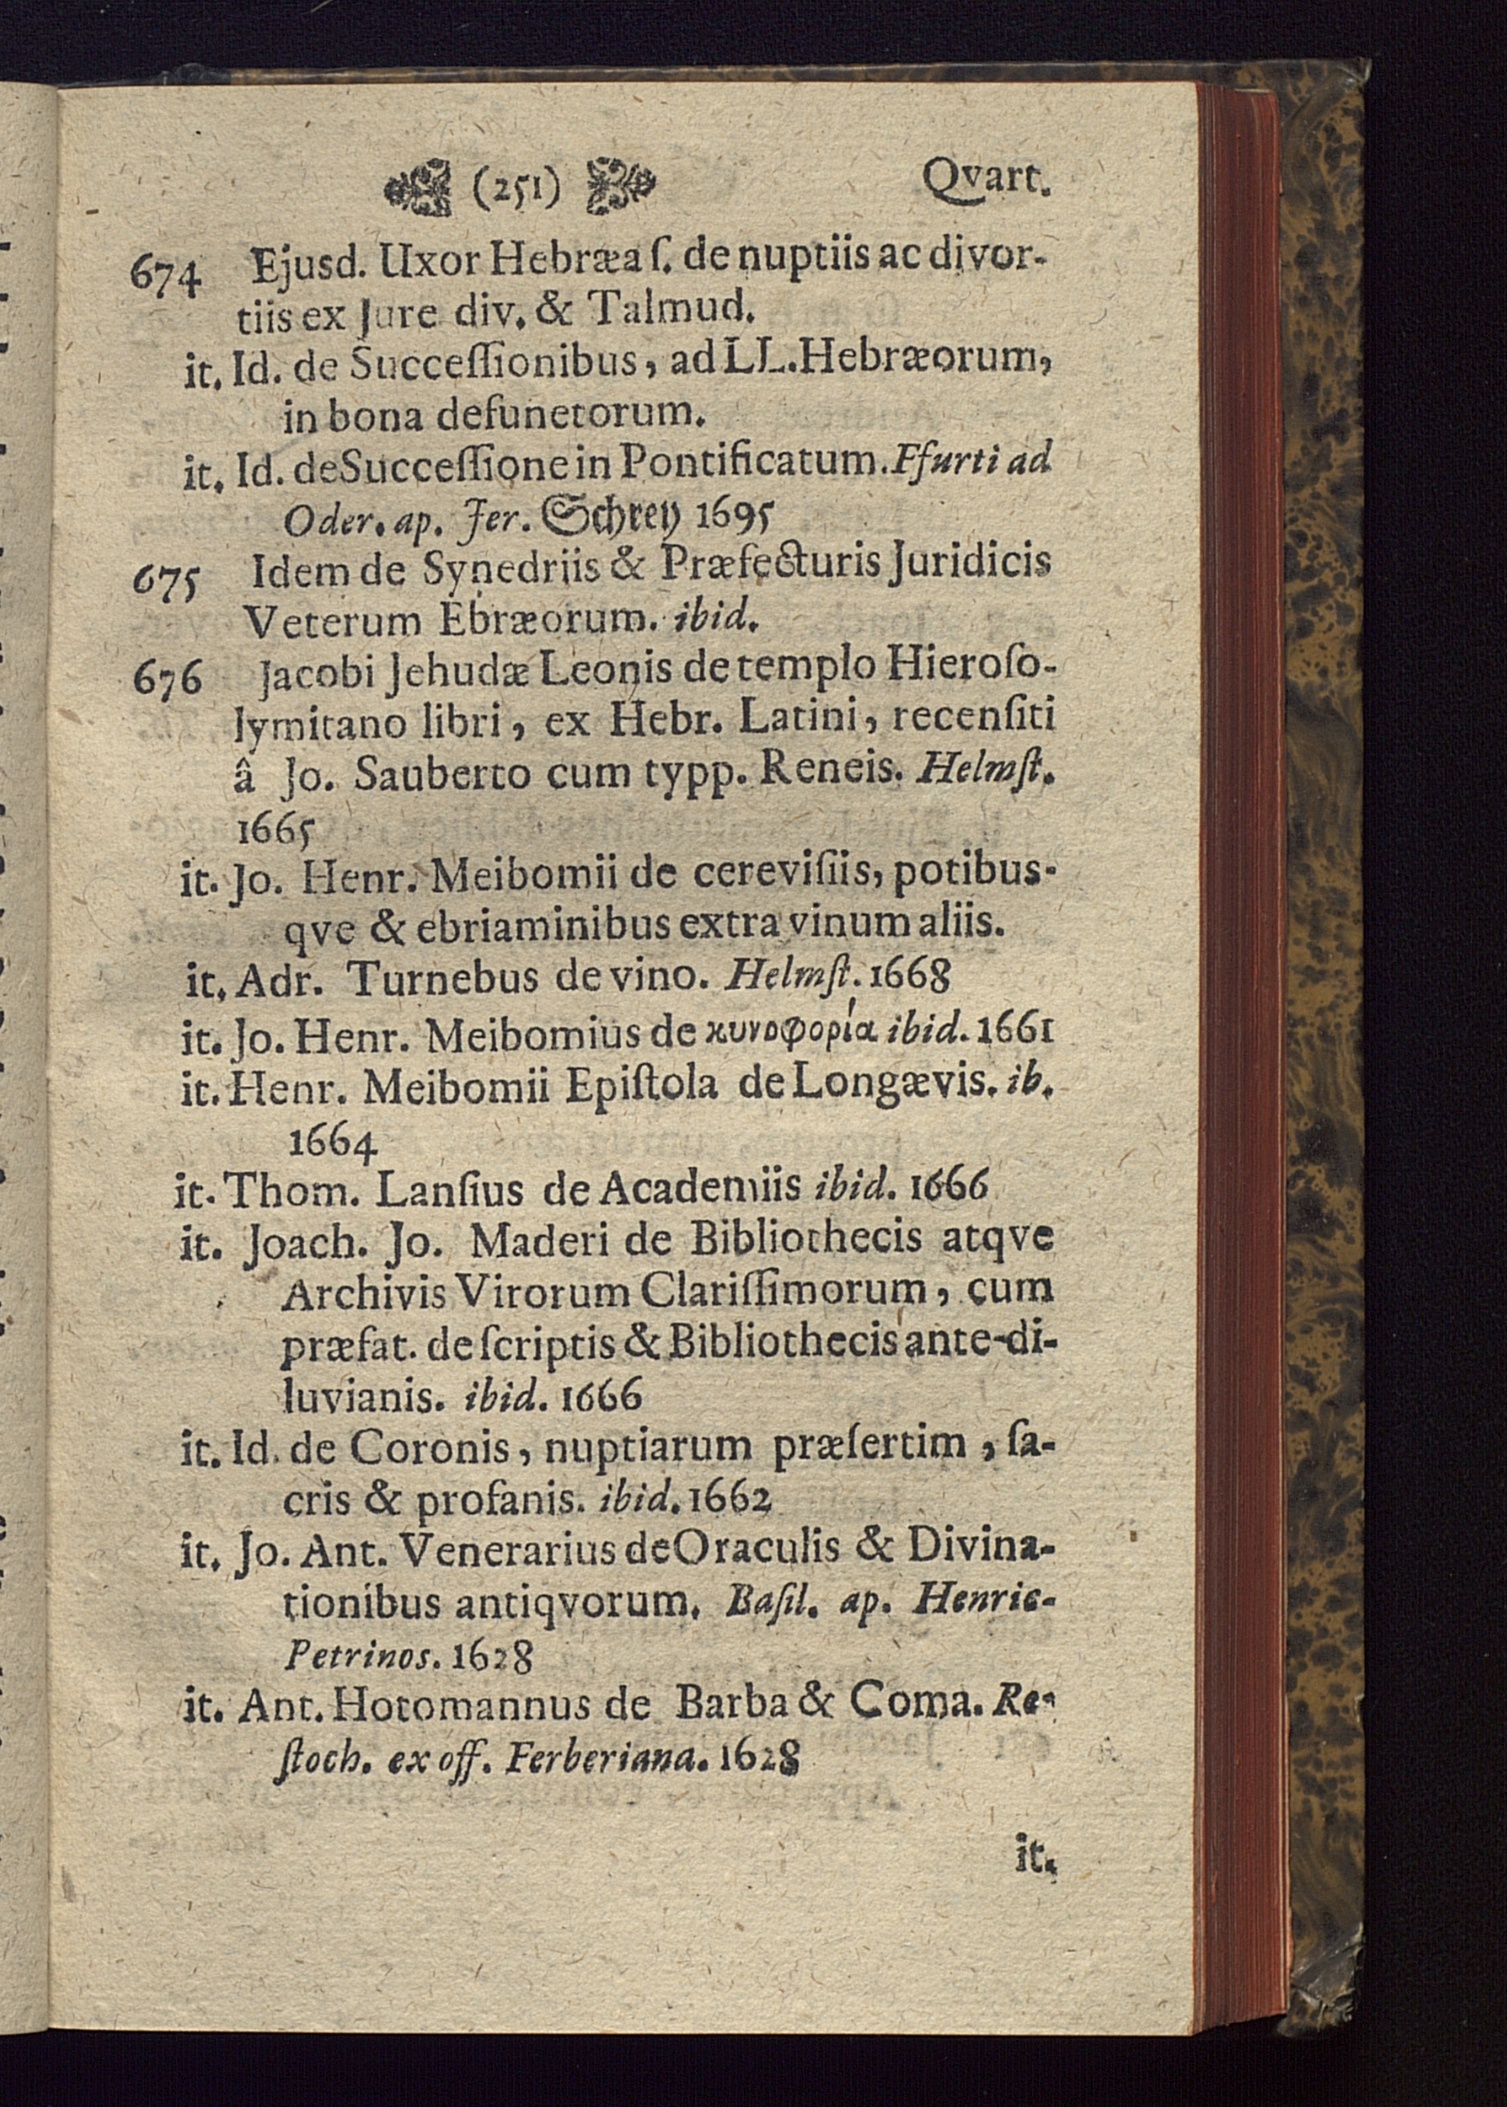 (251) Qvart.
674 Ejusd. Uxor Hebræa ſ. de nuptiis ac divor-
tiis ex Jure div. & Talmud.
it. Id. de Succeſſionibus, ad LL. Hebræorum,
in bona defunctorum.
it. Id. de Succeſſione in Pontificatum. Ffurti ad
Oder. ap. Jer. Schrey 1695
675 Idem de Synedriis & Præfecturis Juridicis
Veterum Ebræorum. ibid.
676 Jacobi Jehudæ Leonis de templo Hieroſo-
lymitano libri, ex Hebr. Latini, recenſiti
â Jo. Sauberto cum typp. Reneis. Helmſt.
1665
it. Jo. Henr. Meibomii de cereviſiis, potibus-
qve & ebriaminibus extra vinum aliis.
it. Adr. Turnebus de vino. Helmſt. 1668
it. Jo. Henr. Meibomius de κυνοφορία ibid. 1661
it. Henr. Meibomii Epiſtola de Longævis. ib.
1664
it. Thom. Lanſius de Academiis ibid. 1666
it. Joach. Jo. Maderi de Bibliothecis atqve
Archivis Virorum Clariſſimorum, cum
præfat. de ſcriptis & Bibliothecis ante-di-
luvianis. ibid. 1666
it. Id. de Coronis, nuptiarum præſertim, ſa-
cris & profanis. ibid. 1662
it. Jo. Ant. Venerarius de Oraculis & Divina-
tionibus antiqvorum. Baſil. ap. Henric-
Petrinos. 1628
it. Ant. Hotomannus de Barba & Coma. Ro-
ſtoch. ex off. Ferberiana. 1628
it.